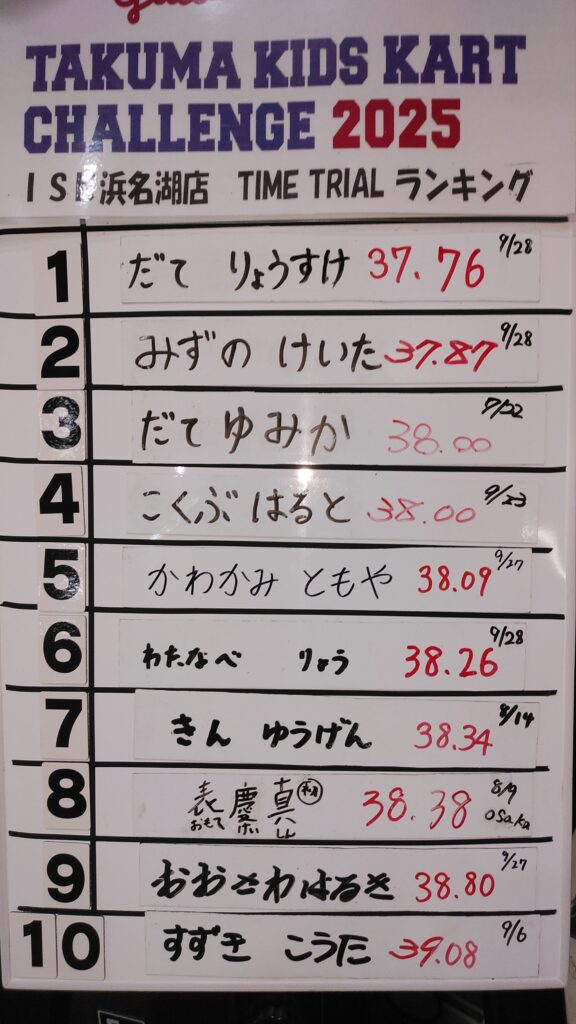 TAKUMA KIDS KART
CHALLENGE 2025
浜名湖店 TIME TRIAL ランキング
1 だて りょうすけ 37.76 9/28
2 みずの けいた 37.87 9/28
3 だて ゆみか 38.00
4 こくぶ はると 38.00 9/23
5 かわかみ ともや 38.09 9/27
6 わたなべ りょう 38.26 9/28
7 きん ゆうげん 38.34 8/14
8 表 慶 真 38.38 8/9
おもて けい しん osaka
9 おおさわはるき 38.80 9/27
10 すずき こうた 39.08 9/6